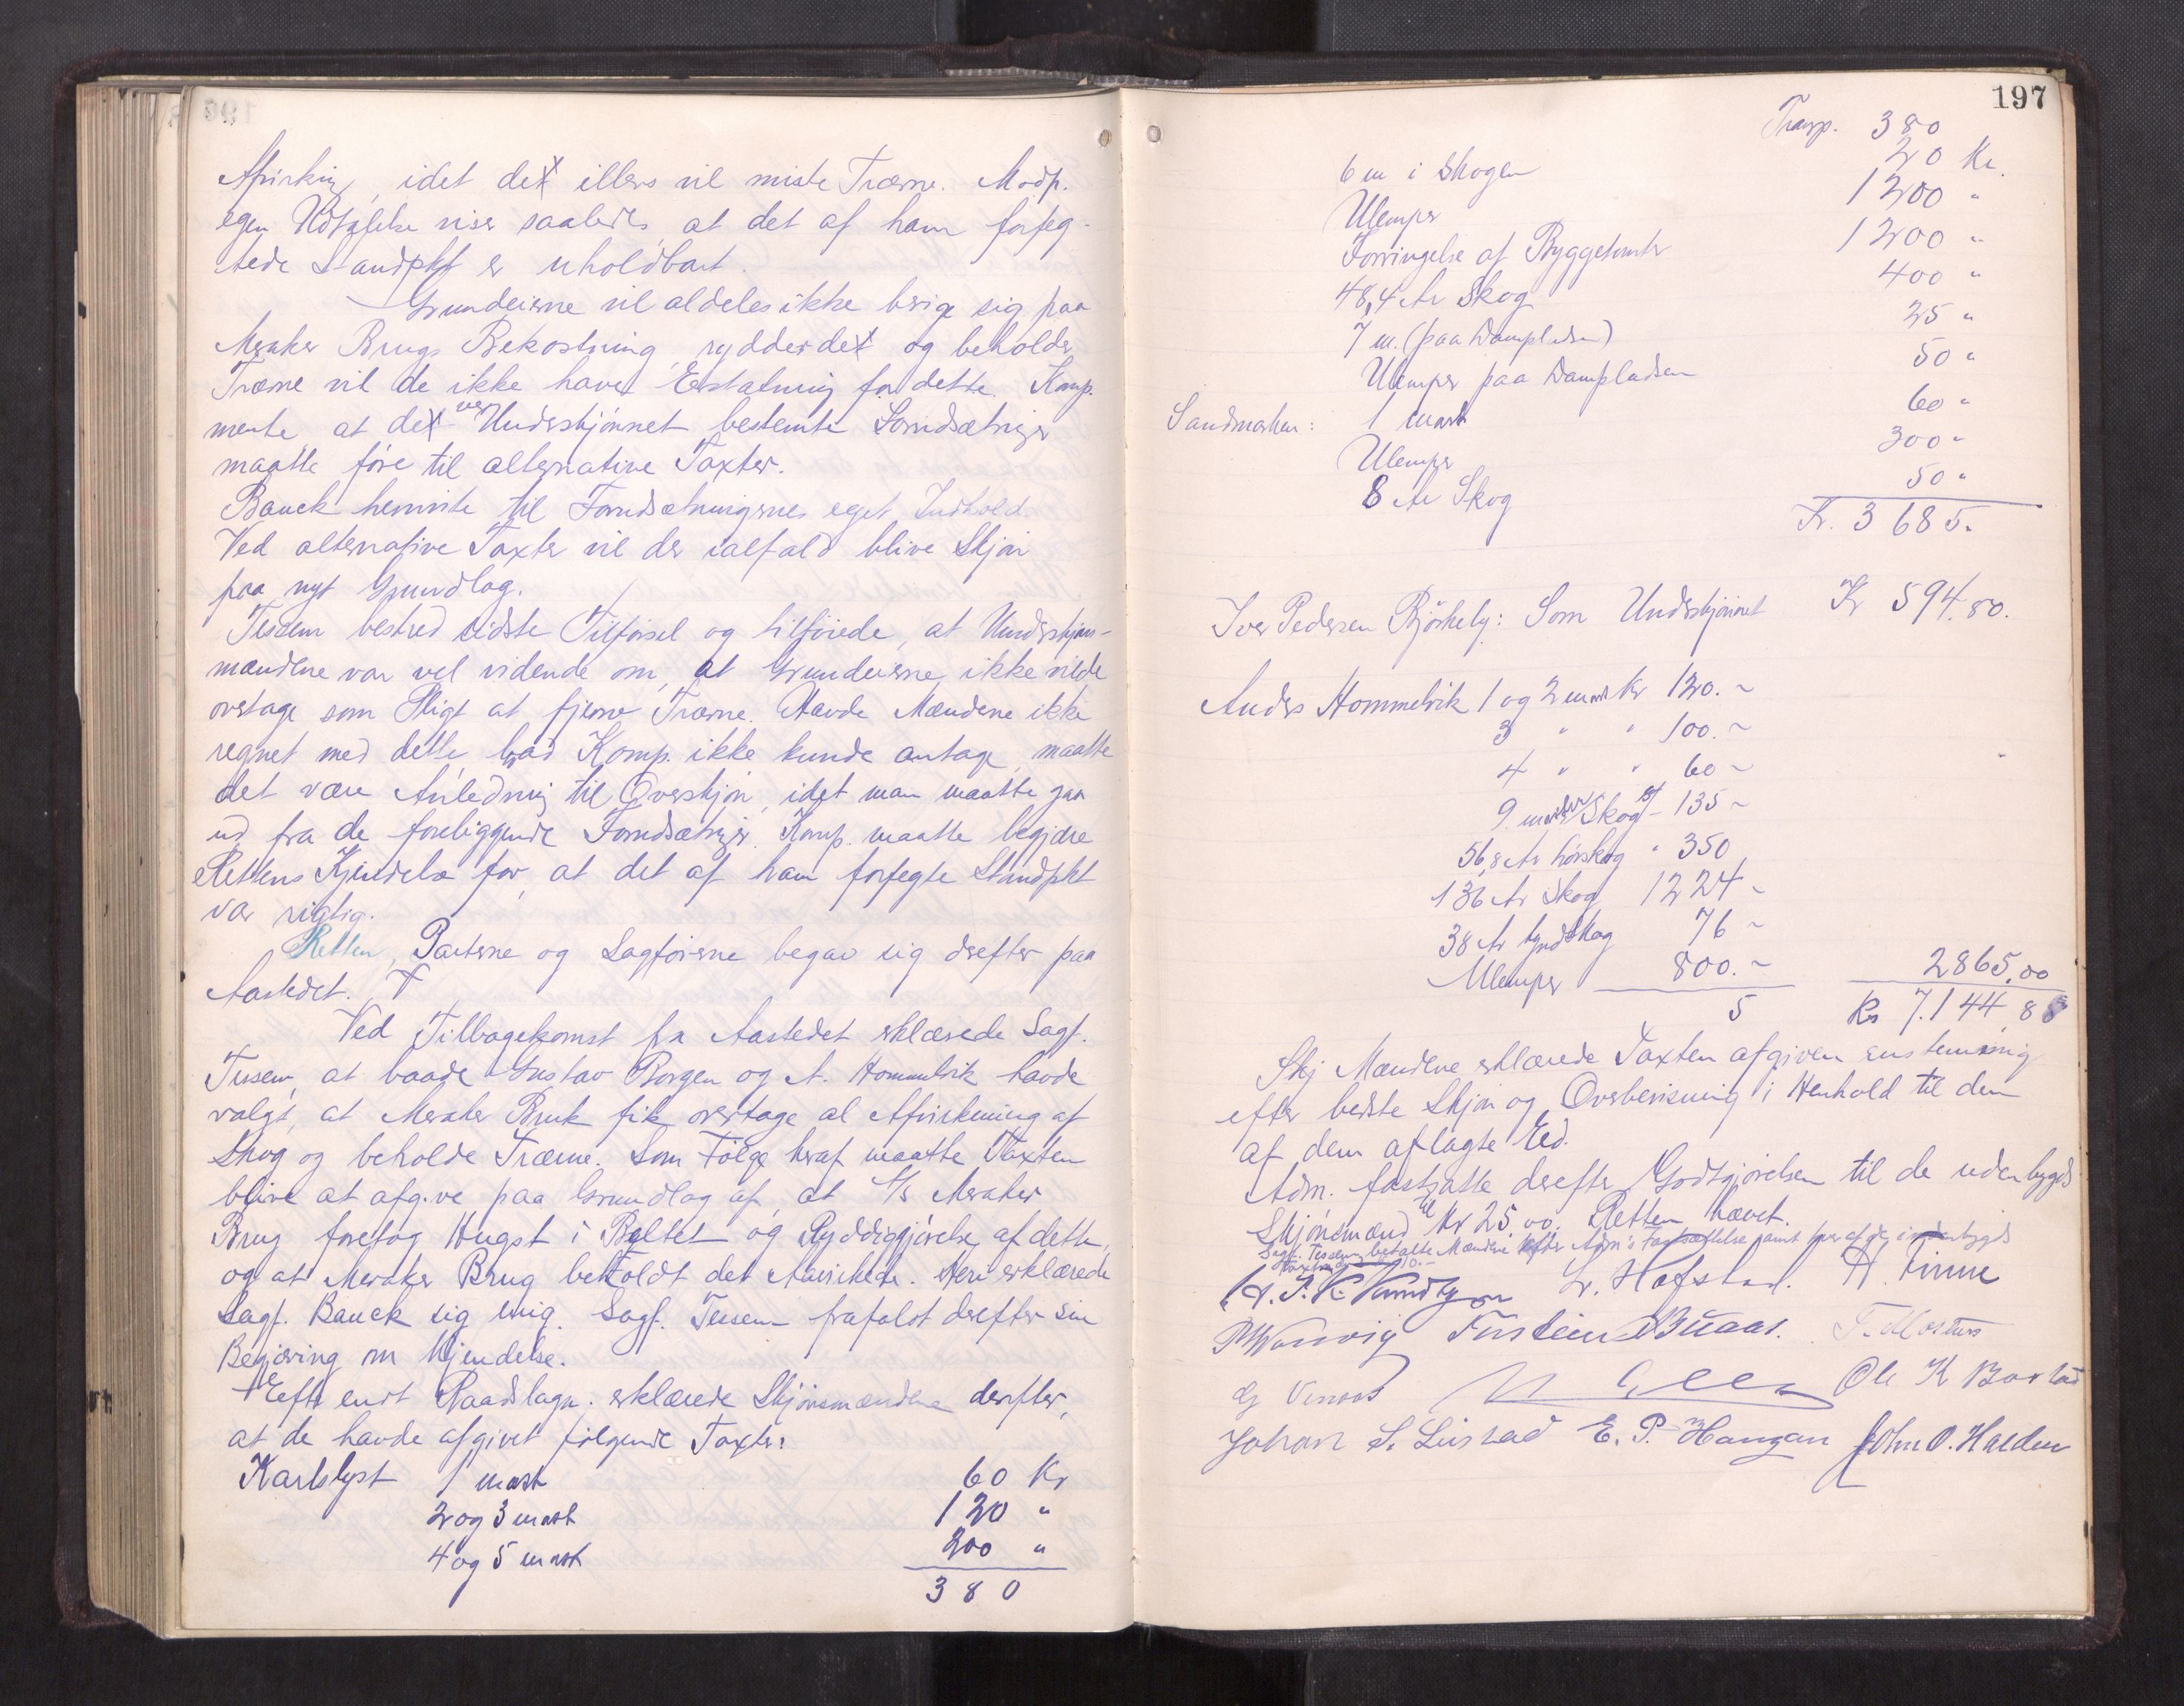 Afvirkning, idet det ellers vil miste Træerne. Modp.
egen Udtalelse viser saaledes, at det af ham forfeg-
tede Standpkt er uholdbart.
Grundeierne vil aldeles ikke berige sig paa
Meraker Brugs Bekostning, rydder det og beholder
Træerne vil de ikke have Erstatning for dette. Komp.
mente, at det ved Underskjønnet bestemte Forudsætninger
maatte føre til alternative Taxter.
Bauck henviste til Forudsætningernes eget Indhold.
Ved alternative Taxter vil der ialfald blive Skjøn
paa nyt Grundlag.
Tessem bestred sidste Tilførsel og tilføiede, at Underskjøns-
mændene var vel vidende om, at Grundeierne ikke vilde
overtage som Pligt at fjerne Træerne. Havde Mændene ikke
regnet med dette, hvad Komp. ikke kunde antage, maatte
det være Anledning til Overskjøn, idet man maatte gaa
ud fra de foreliggende Forudsætninger. Komp. maatte begjære
Rettens Kjendelse for, at det af ham forfegte Standpkt
var rigtig.
Retten, Parterne og Sagførerne begav sig derefter paa
Aastedet.
Ved Tilbagekomst fra Aastedet erklærede Sagf.
Tessem, at baade Gustav Borgen og A. Hommelvik havde
valgt, at Meraker Bruk fik overtage al Afvirkning af
Skog og beholde Træerne. Som Følge heraf maatte Taxten
blive at afgive paa Grundlag af, at A/S Meraker
Brug foretog Hugst i Beltet og Ryddiggjørelse af dette,
og at Meraker Brug beholdt det Aavirkede. Heri erklærede
Sagf. Bauck sig enig. Sagf. Tessem frafaldt derefter sin
Begjæring om Kjendelse.
Efter endt Raadslagn. erklærede Skjønsmændene derefter,
at de havde afgivet følgende Taxter:
Karlslyst 1 mast 60 Kr
2 og 3 mast 120 "
4 og 5 mast 200 "
380
197
Transp. 380
6 m i Skogen 20 Kr.
Ulemper 1200 "
Forringelse af Byggetomter 1200 "
48,4 Ar Skog 400 "
7 m. (paa Dampladsen) 25 "
Ulemper paa Dampladsen 50 "
Sandmarken: 1 mast 60 "
Ulemper 300 "
8 Ar Skog 50 "
Kr. 3685.
Iver Pedersen Bjørkely: Som Underskjønnet Kr 594.80.
Anders Hommelvik 1 og 2 mast Kr 120. ~
3 " " 100. ~
4 " " 60 ~
9 master Skog 135 ~
56,8 Ar Løvskog " 350
136 Ar Skog 1224 ~
38 Ar tyndskog 76 ~
Ulemper 800. ~ 2865,00
5 Kr 7.144,88
Skj Mændene erklærede Taxten afgiven enstemmig
efter bedste Skjøn og Overbevisning i Henhold til den
af dem aflagte Ed.
Adm. fastsatte derefter Godtgjørelsen til de udenbygds
Skjønsmænd til Kr 25.00. Retten hævet.
Sagf. Tessem betalte Mændene efter Adm's Fastsættelse samt hver af de indenbygds
10.-
L. Hofstad. H. Finne
Torstein Buaas.
Ole K Borstad
Johan S. Leistad E. P. Haugan John O. Halden